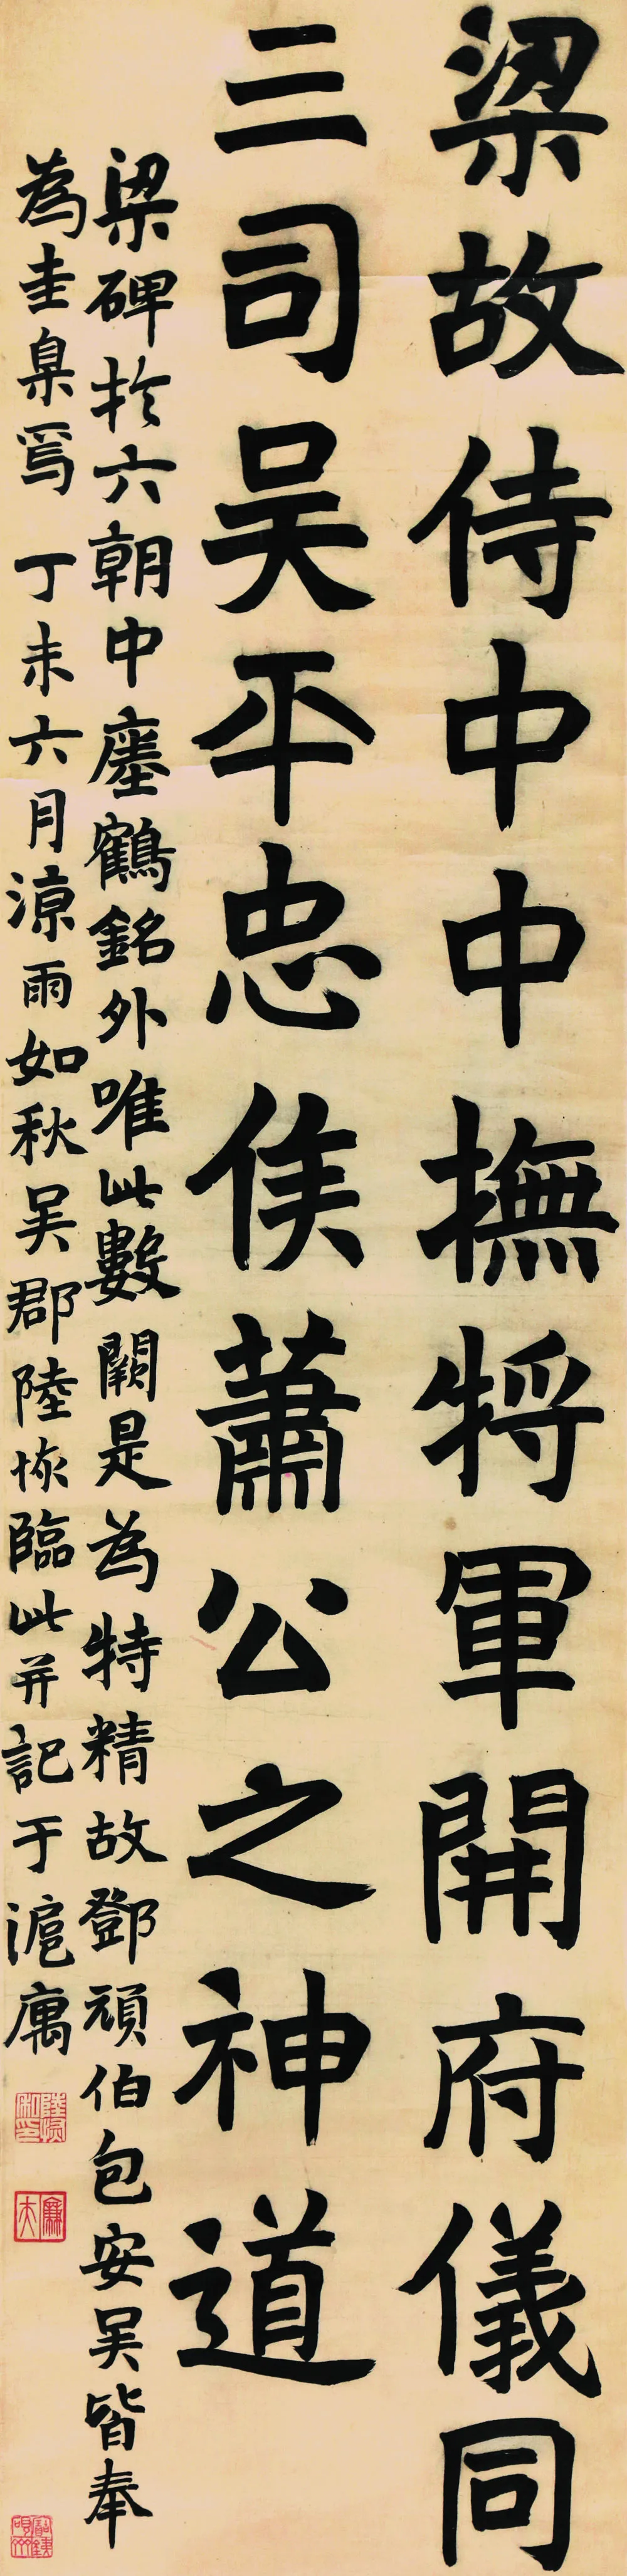 梁故侍中中撫將軍開府儀同
三司吴平忠侯蕭公之神道
梁碑於六朝中瘞鶴銘外唯此數闕是為特精故鄧頑伯包安吴皆奉
為圭臬焉 丁未六月涼雨如秋吴郡陸恢臨此并記于滬寓
陸恢私印
廉夫